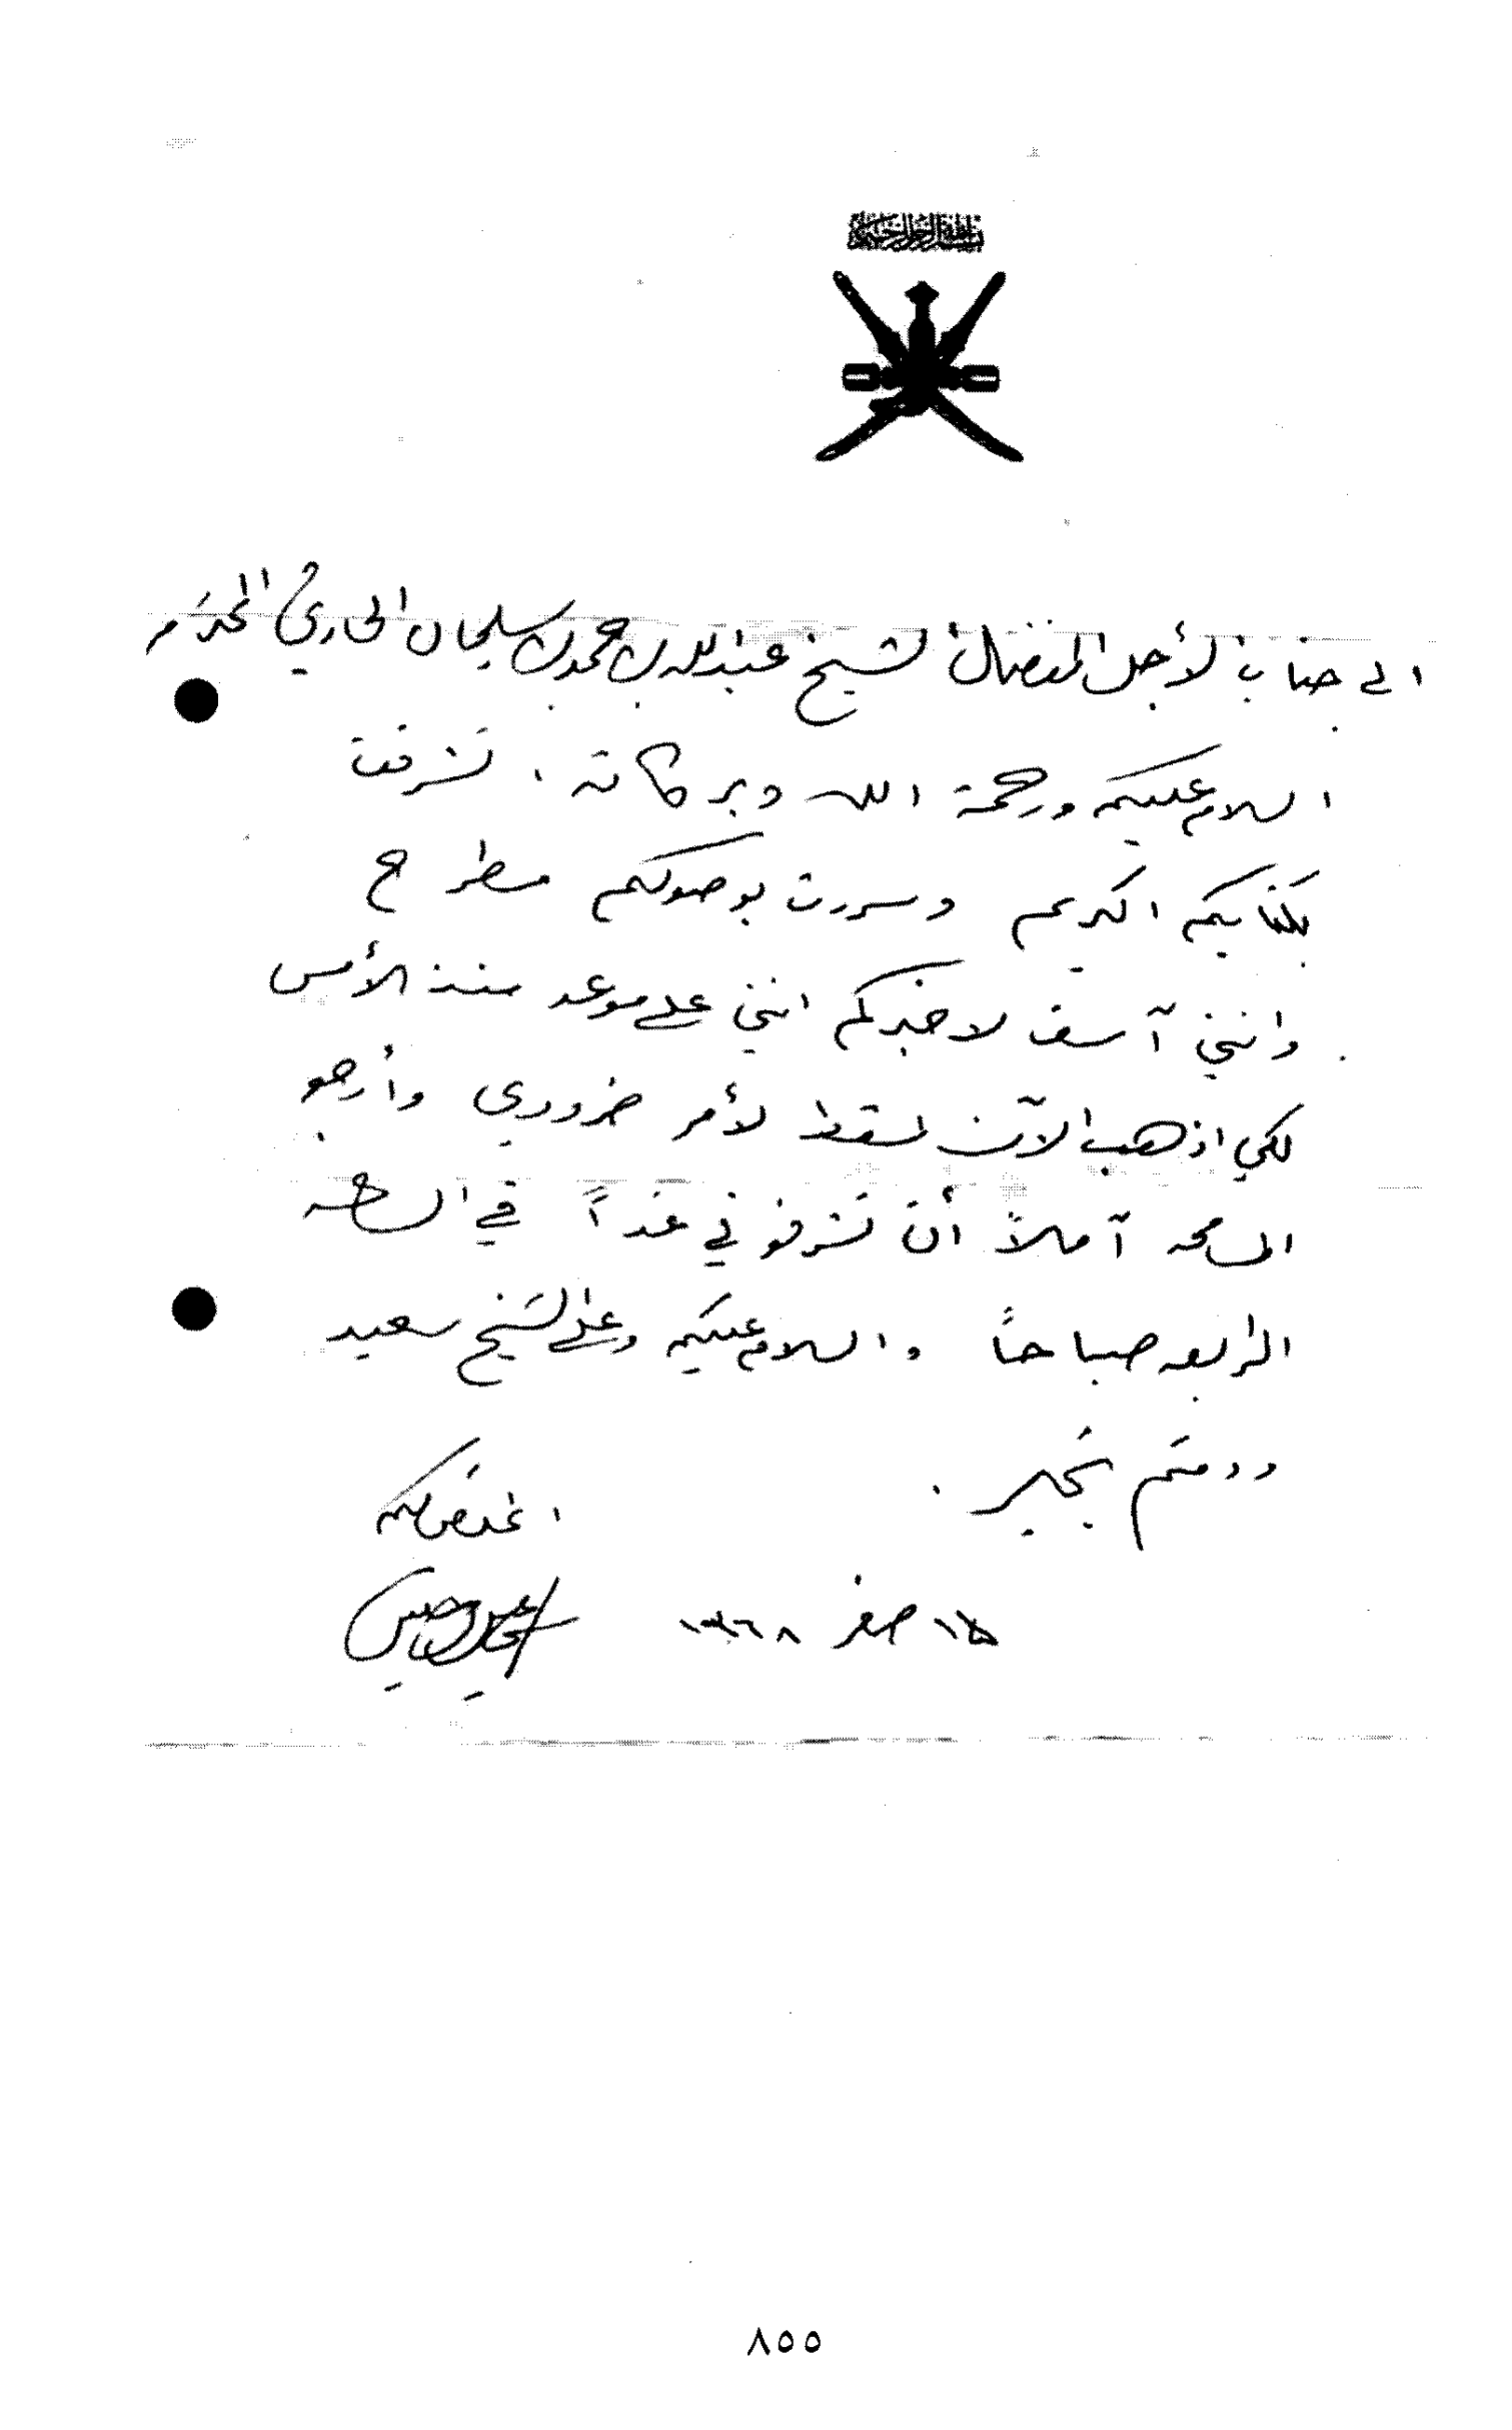 بسم الله الرحمن الرحيم
الى جناب الأجل المفضال الشيخ عبدالله بن محمد بن سليمان الحارثي المحترم
السلام عليكم ورحمة الله وبركاته، تشرفت
بكتابكم الكريم وسررت بوصولكم مطرح
وانني آسف لاخبركم انني على موعد منذ الأمس
لكي اذهب الآن لمسقط لأمر ضروري وأرجو
المسامحه آملاً أن تشرفوني غداً في الساعه
الرابعه صباحاً والسلام عليكم وعلى الشيخ سعيد
ودمتم بخير .
المخلص لكم
١٥ صفر ١٣٦٨
٨٥٥